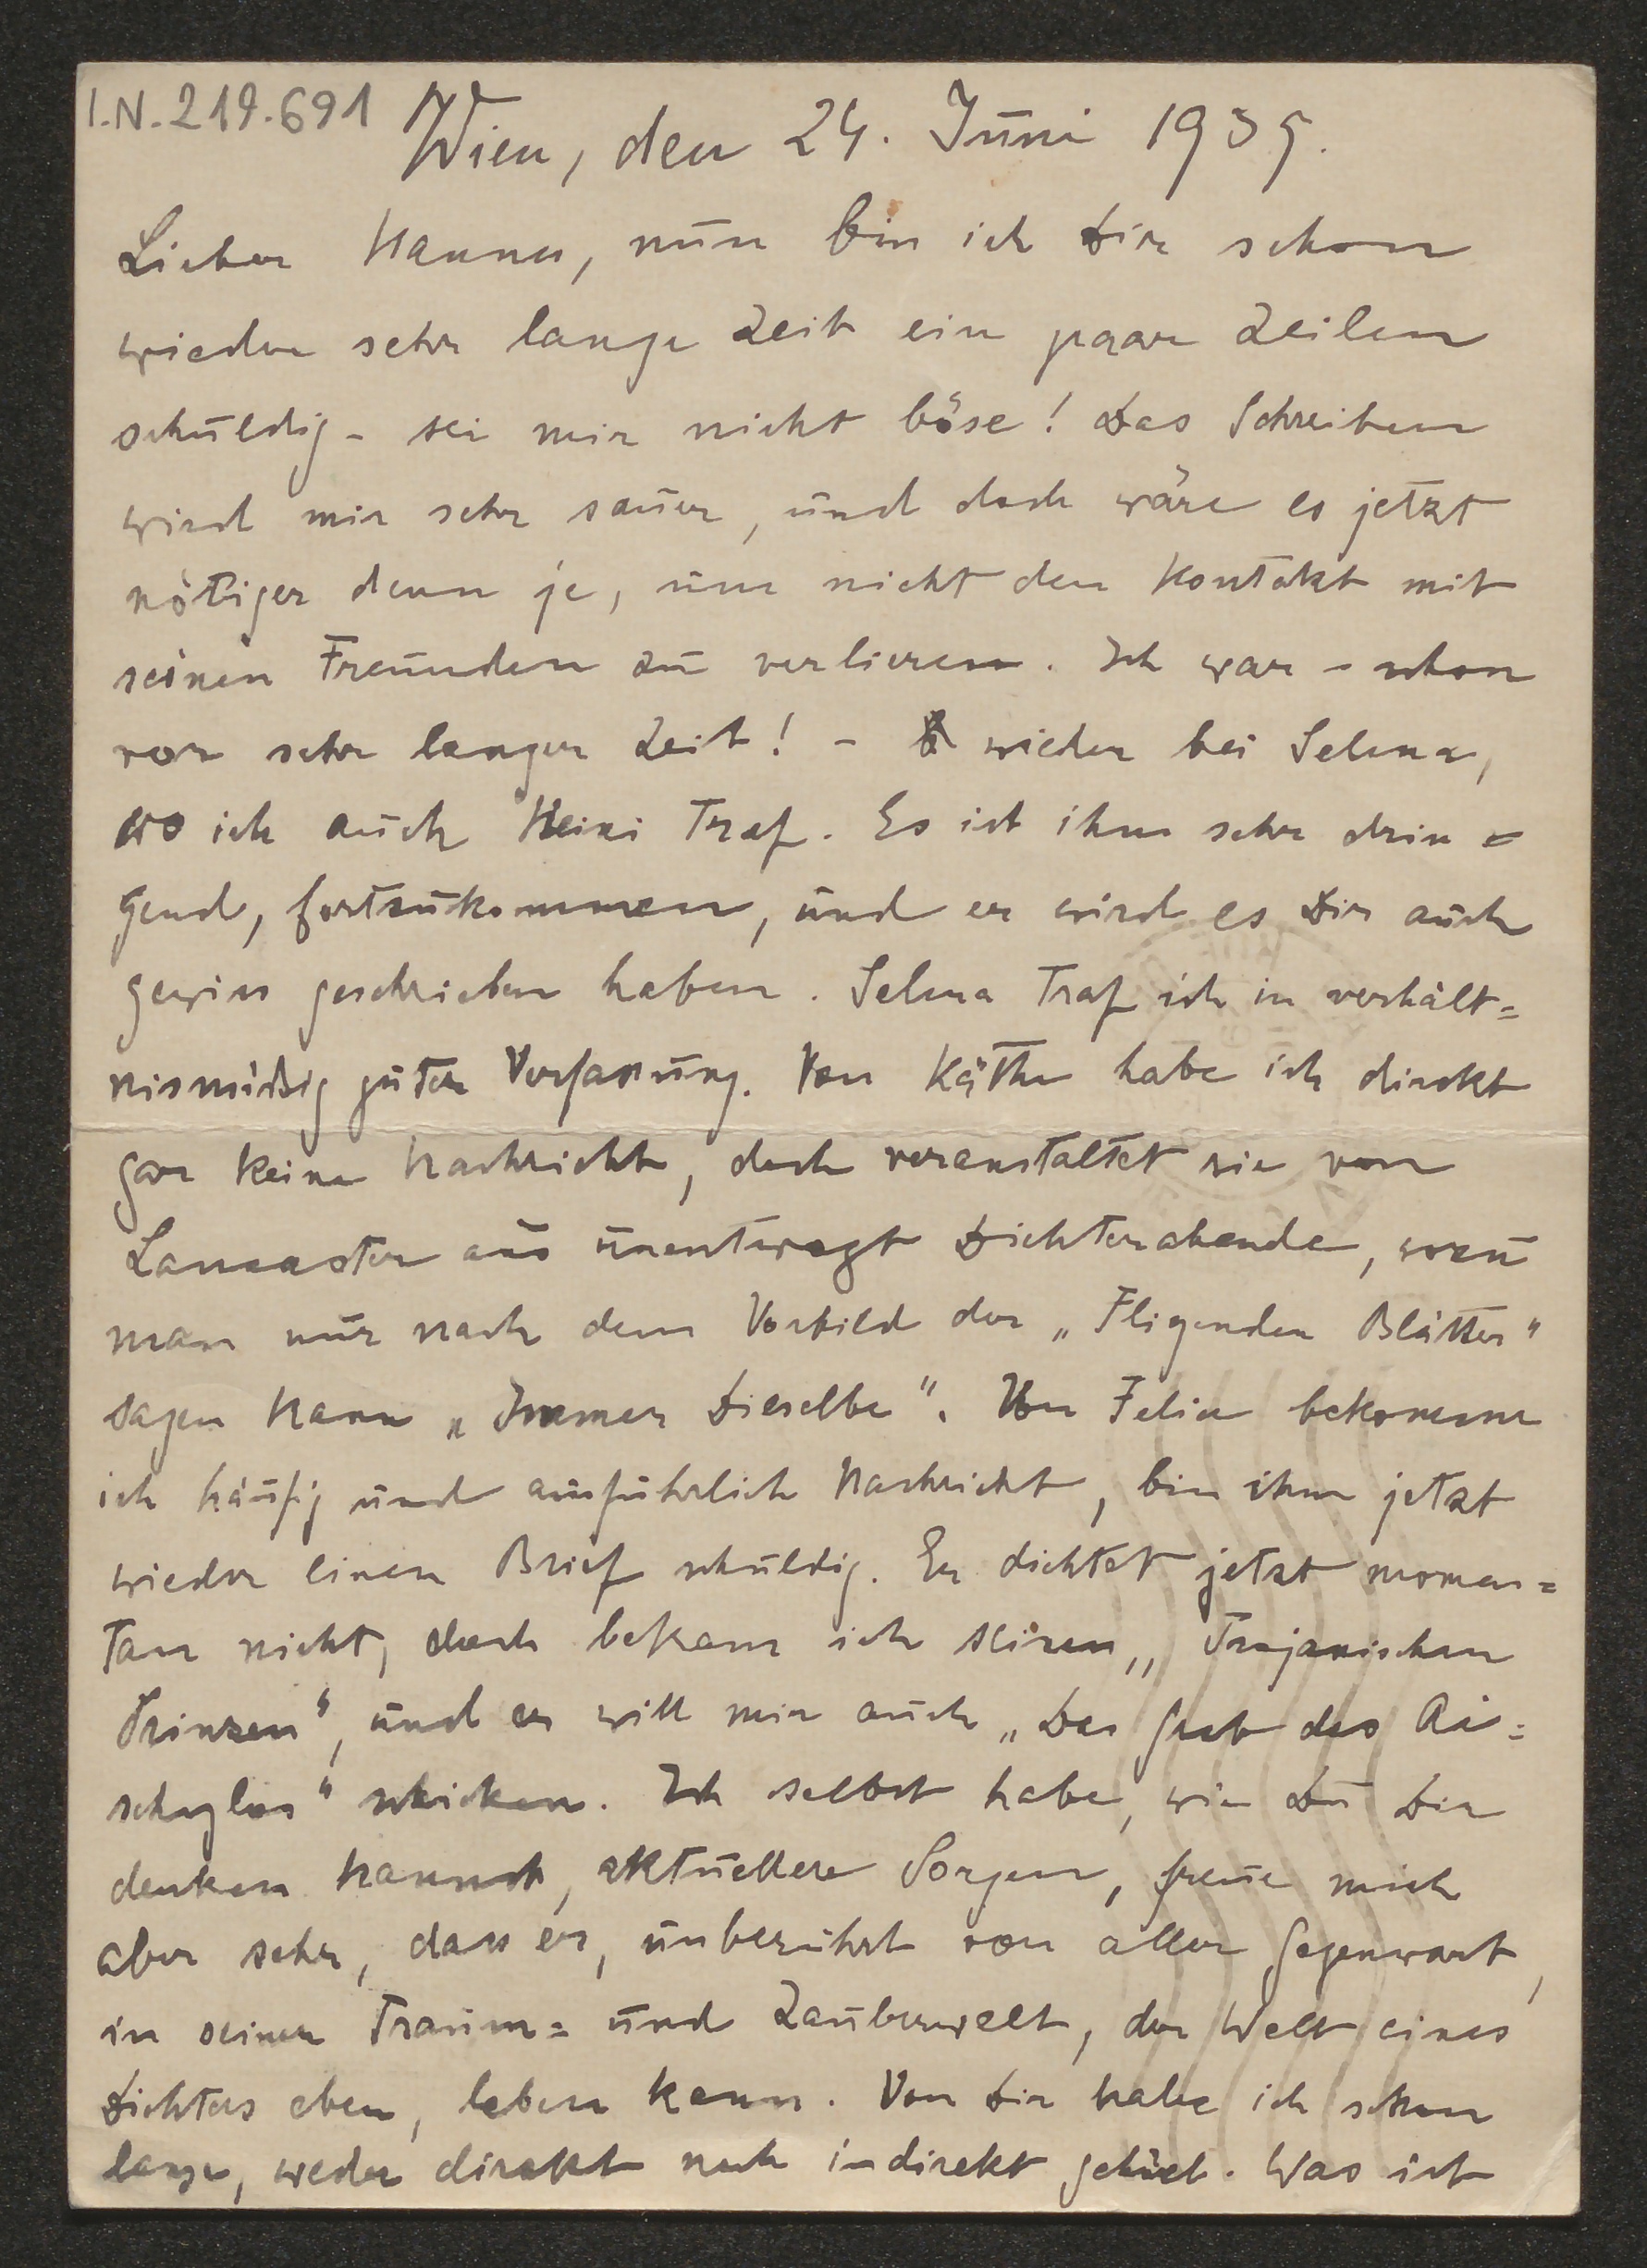 I.N. 219.691
Wien, den 24. Juni 1939.
Lieber Hannes, nun bin ich Dir schon
wieder sehr lange Zeit ein paar Zeilen
schuldig - sei mir nicht böse! Das Schreiben
wird mir sehr sauer, und doch wäre es jetzt
nötiger denn je, um nicht den Kontakt mit
seinen Freunden zu verlieren. Ich war - schon
vor sehr langer Zeit! - wieder bei Selma,
wo ich auch Heini traf. Es ist ihm sehr drin=
gend, fortzukommen, und er wird es Dir auch
gewiss geschrieben haben. Selma traf ich in verhält=
nismäßig guter Verfassung. Von Käthe habe ich direkt
gar keine Nachricht, doch veranstaltet sie von
Lancaster aus unentwegt Dichterabende, wozu
man nur nach dem Vorbild der „Fligenden Blätter"
sagen kann „Immer Dieselbe". Von Felix bekomme
ich häufig und ausführlich Nachricht, bin ihm jetzt
wieder einen Brief schuldig. Er dichtet jetzt momen=
tan nicht, doch bekam ich seinen „Trojanischen
Prinzen", und er will mir auch „Das Grab des Ai=
schylos" schicken. Ich selbst habe, wie Du Dir
denken kannst, aktuellere Sorgen, freue mich
aber sehr, dass er, unberührt von aller Gegenwart,
in seiner Traum= und Zauberwelt, der Welt eines
Dichters eben, leben kann. Von Dir habe ich schon
lange, weder direkt noch indirekt gehört. Was ist